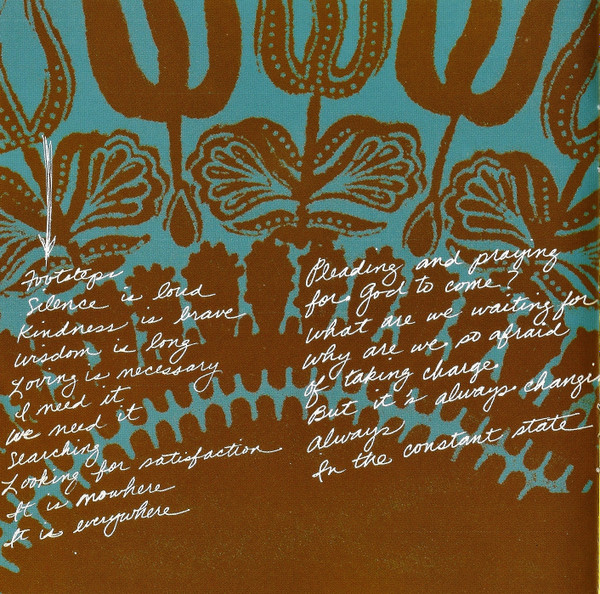 Footsteps
Silence is loud
Kindness is brave
Wisdom is long
Loving is necessary
I need it
We need it
Searching
Looking for satisfaction
It is nowhere
It is everywhere
Pleading and praying
for God to come?
What are we waiting for
why are we so afraid
of taking charge
But it's always changin
always
In the constant state